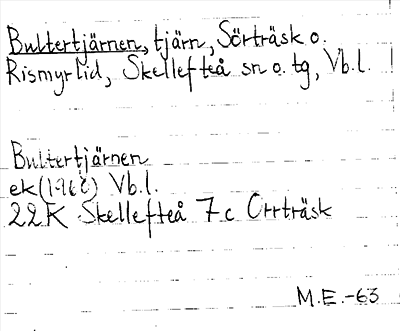 Bultertjärnen, tjärn, Sörträsk o.
Rismyrlid, Skellefteå sn o. tg, Vb.l.
Bultertjärnen
ek(1962) Vb.l.
22K Skellefteå 7c Orrträsk
M.E.-63